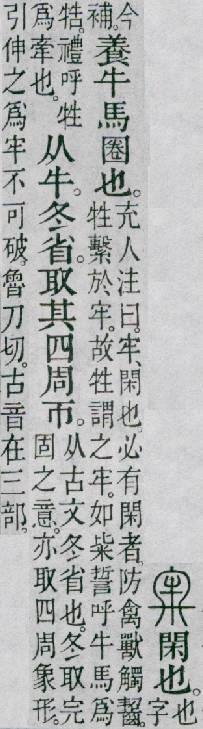 牢閑也。也字
今補。養牛馬圈也。充人注曰。牢、閑也。必有閑者、防禽獸觸齧。牲繫於牢。故牲謂之牢。如柴誓呼牛馬爲
牿。禮呼牲爲牽也。从牛。冬省。取其四周帀。从古文冬省也。冬取完固之意。亦取四周象形。
引伸之爲牢不可破。魯刀切。古音在三部。